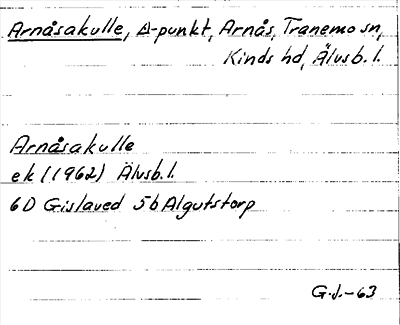 Arnåsakulle, Δ-punkt, Arnås, Tranemo sn,
Kinds hd, Älvsb. l.
Arnåsakulle
ek (1962) Älvsb. l.
6D Gislaved 5b Algutstorp
G.J.-63